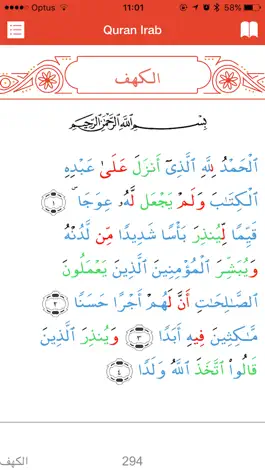 Optus 11:01 58%
Quran Irab
الكهف
بِسْمِ ٱللَّهِ ٱلرَّحْمَٰنِ ٱلرَّحِيمِ
ٱلْحَمْدُ لِلَّهِ ٱلَّذِىٓ أَنزَلَ عَلَىٰ عَبْدِهِ
ٱلْكِتَٰبَ وَلَمْ يَجْعَل لَّهُۥ عِوَجَا ۜ ١
قَيِّمًا لِّيُنذِرَ بَأْسًا شَدِيدًا مِّن لَّدُنْهُ
وَيُبَشِّرَ ٱلْمُؤْمِنِينَ ٱلَّذِينَ يَعْمَلُونَ
ٱلصَّٰلِحَٰتِ أَنَّ لَهُمْ أَجْرًا حَسَنًا ٢
مَّٰكِثِينَ فِيهِ أَبَدًا ٣ وَيُنذِرَ ٱلَّذِينَ
قَالُوا۟ ٱتَّخَذَ ٱللَّهُ وَلَدًا ٤
الكهف 294